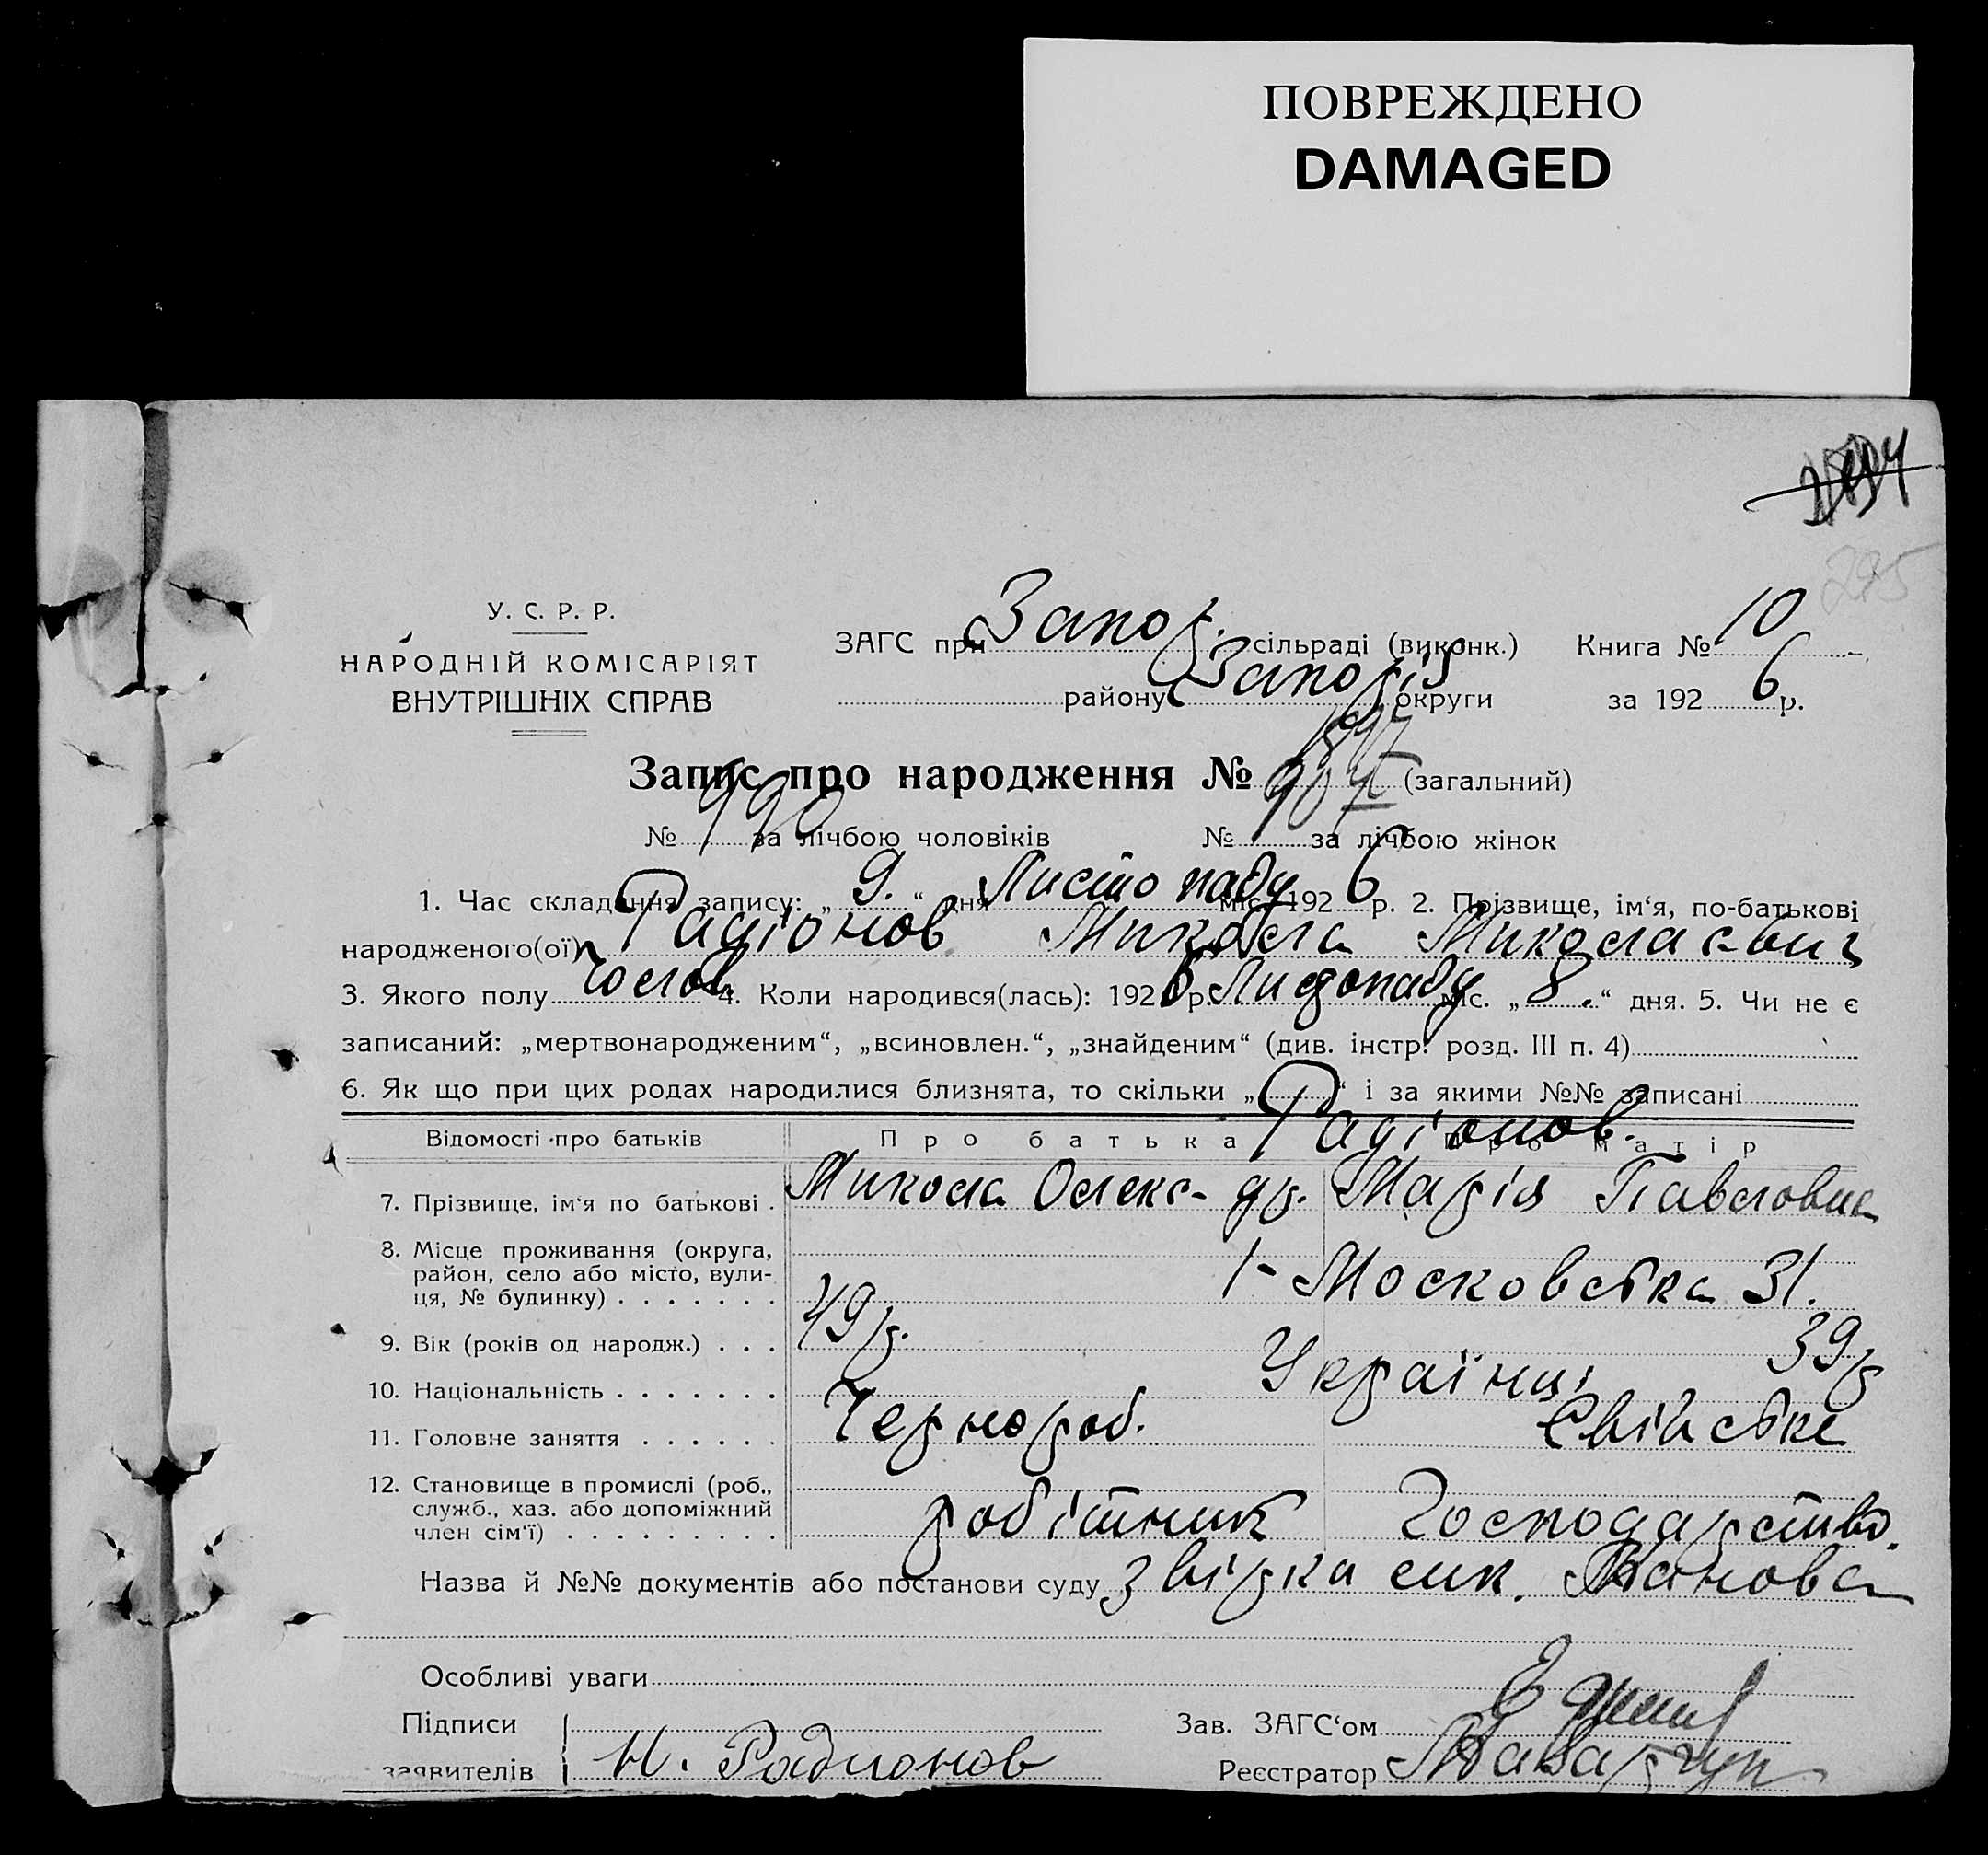 ПОВРЕЖДЕНО
DAMAGED
295
У. С. Р. Р.
НАРОДНІЙ КОМІСАРІЯТ
ВНУТРІШНІХ СПРАВ
ЗАГС при Запор. сільраді (виконк.) Книга № 10
району Запоріз округи за 192 6 р.
Запис про народження № (загальний)
№ 990 за лічбою чоловіків № за лічбою жінок
1. Час складання запису: „ 9. “ дня Листопаду міс. 192 6 р. 2. Прізвище, ім‘я, по-батькові
народженого(ої) Радіонов Микола Миколаевич
3. Якого полу чолов. 4. Коли народився(лась): 192 6 р. Листопаду міс. „ 8. “ дня. 5. Чи не є
записаний: „мертвонародженим“, „всиновлен.“, „знайденим“ (див. інстр. розд. III п. 4)
6. Як що при цих родах народилися близнята, то скільки „ “ і за якими №№ записані
Відомості про батьків Про батька Про матір
Радіонов.
7. Прізвище, ім‘я по батькові . Микола Олекс-др. Марія Павловна
8. Місце проживання (округа, район, село або місто, вулиця, № будинку) . . . . . . . 1- Московська 31.
9. Вік (років од народж.) . . . 49 р. 39 р
10. Національність . . . . . . . Українці
11. Головне заняття . . . . . . Чернороб. Свійське
12. Становище в промислі (роб., служб., хаз. або допоміжний член сім‘ї) . . . . . . . . . робітник Господарство.
Назва й №№ документів або постанови суду звірка
Особливі уваги
Підписи Зав. ЗАГС‘ом
заявителів Н. Радионов Реєстратор